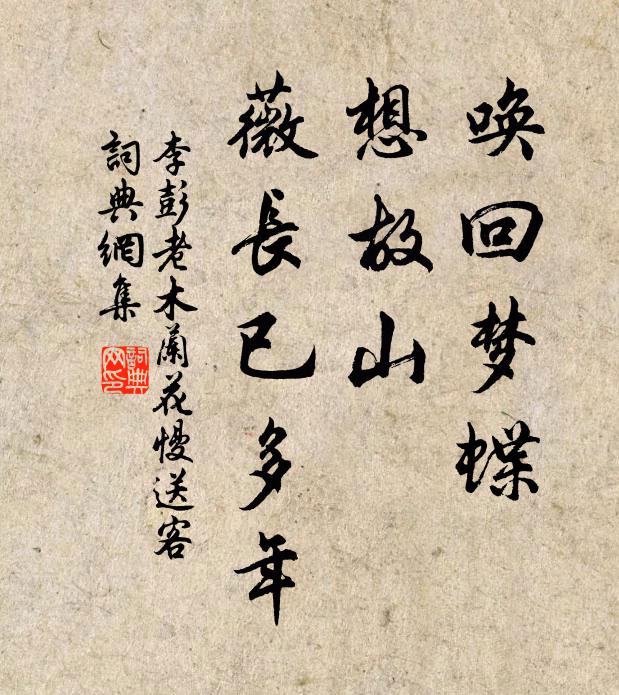 唤回梦蝶
想故山
薇長已多年
李彭老木蘭花慢送客
詞典網集
詞典
网印